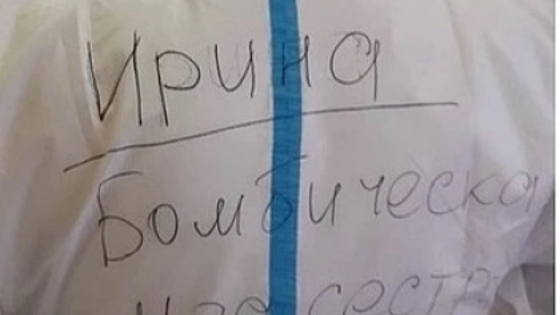 Ирина
Бомбическа
мед сестр